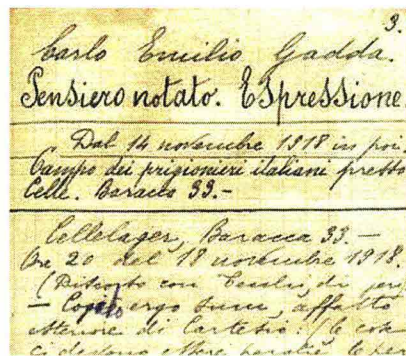 3.
Carlo Emilio Gadda.
Pensiero notato. Espressione
Dal 14 novembre 1918 in poi.
Campo dei prigionieri italiani presso
Celle. Baracca 33.-
Cellelager, Baracca 33. -
Ora 20 del 18 novembre 1918.
(Discorso con di
- ergo sum, affatto
di Cartesio: le
ci devono essere, perchè le